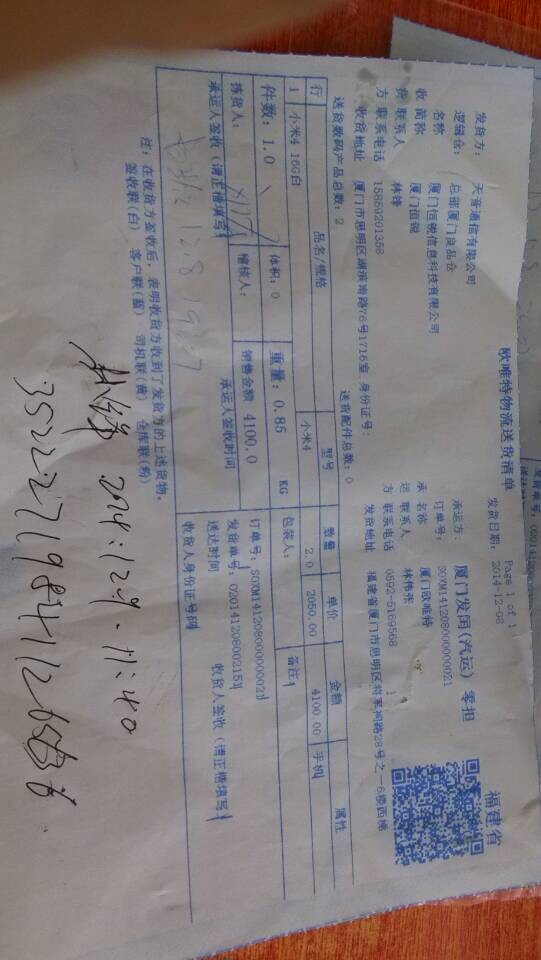 欧唯特物流送货清单
福建省
Page 1 of 1
发货日期: 2014-12-08
发货方: 天音通信有限公司
逻辑仓: 总部厦门良品仓
承运方: 厦门发闰(汽运) 零担
订单号: SOXM14120800000021
收 名称 厦门恒锐信息科技有限公司
货 简称 厦门恒锐
方 联系人 林锋
联系电话 15859201358
收货地址 厦门市思明区湖滨南路76号1716室 身份证号:
承 名称 厦门欧唯特
运 联系人 林伟乔
方 联系电话 0592-5169568
发货地址 福建省厦门市思明区将军祠路28号之一6楼西梯
送货数码产品总数: 2 送货配件总数: 0
行 品名/规格 型号 数量 单价 金额 属性
1 小米4 16G白 小米4 2.0 2050.00 4100.00 手机
件数: 1.0 体积: 0 重量: 0.85 KG 包装人: 备注
拣货人: 稽核人: 销售金额 4100.0 订单号: SOXM14120800000021
发货单号: 02014120800215
承运人签收(请正楷填写) 承运人签收时间 送达时间 收货人签收(请正楷填写)
收货人身份证号码
注: 在收货方签收后, 表明收货方收到了发货方的上述货物。
签收联(白) 客户联(蓝) 司机联(黄) 仓库联(粉)
林锋 2014.12.9. 11:40